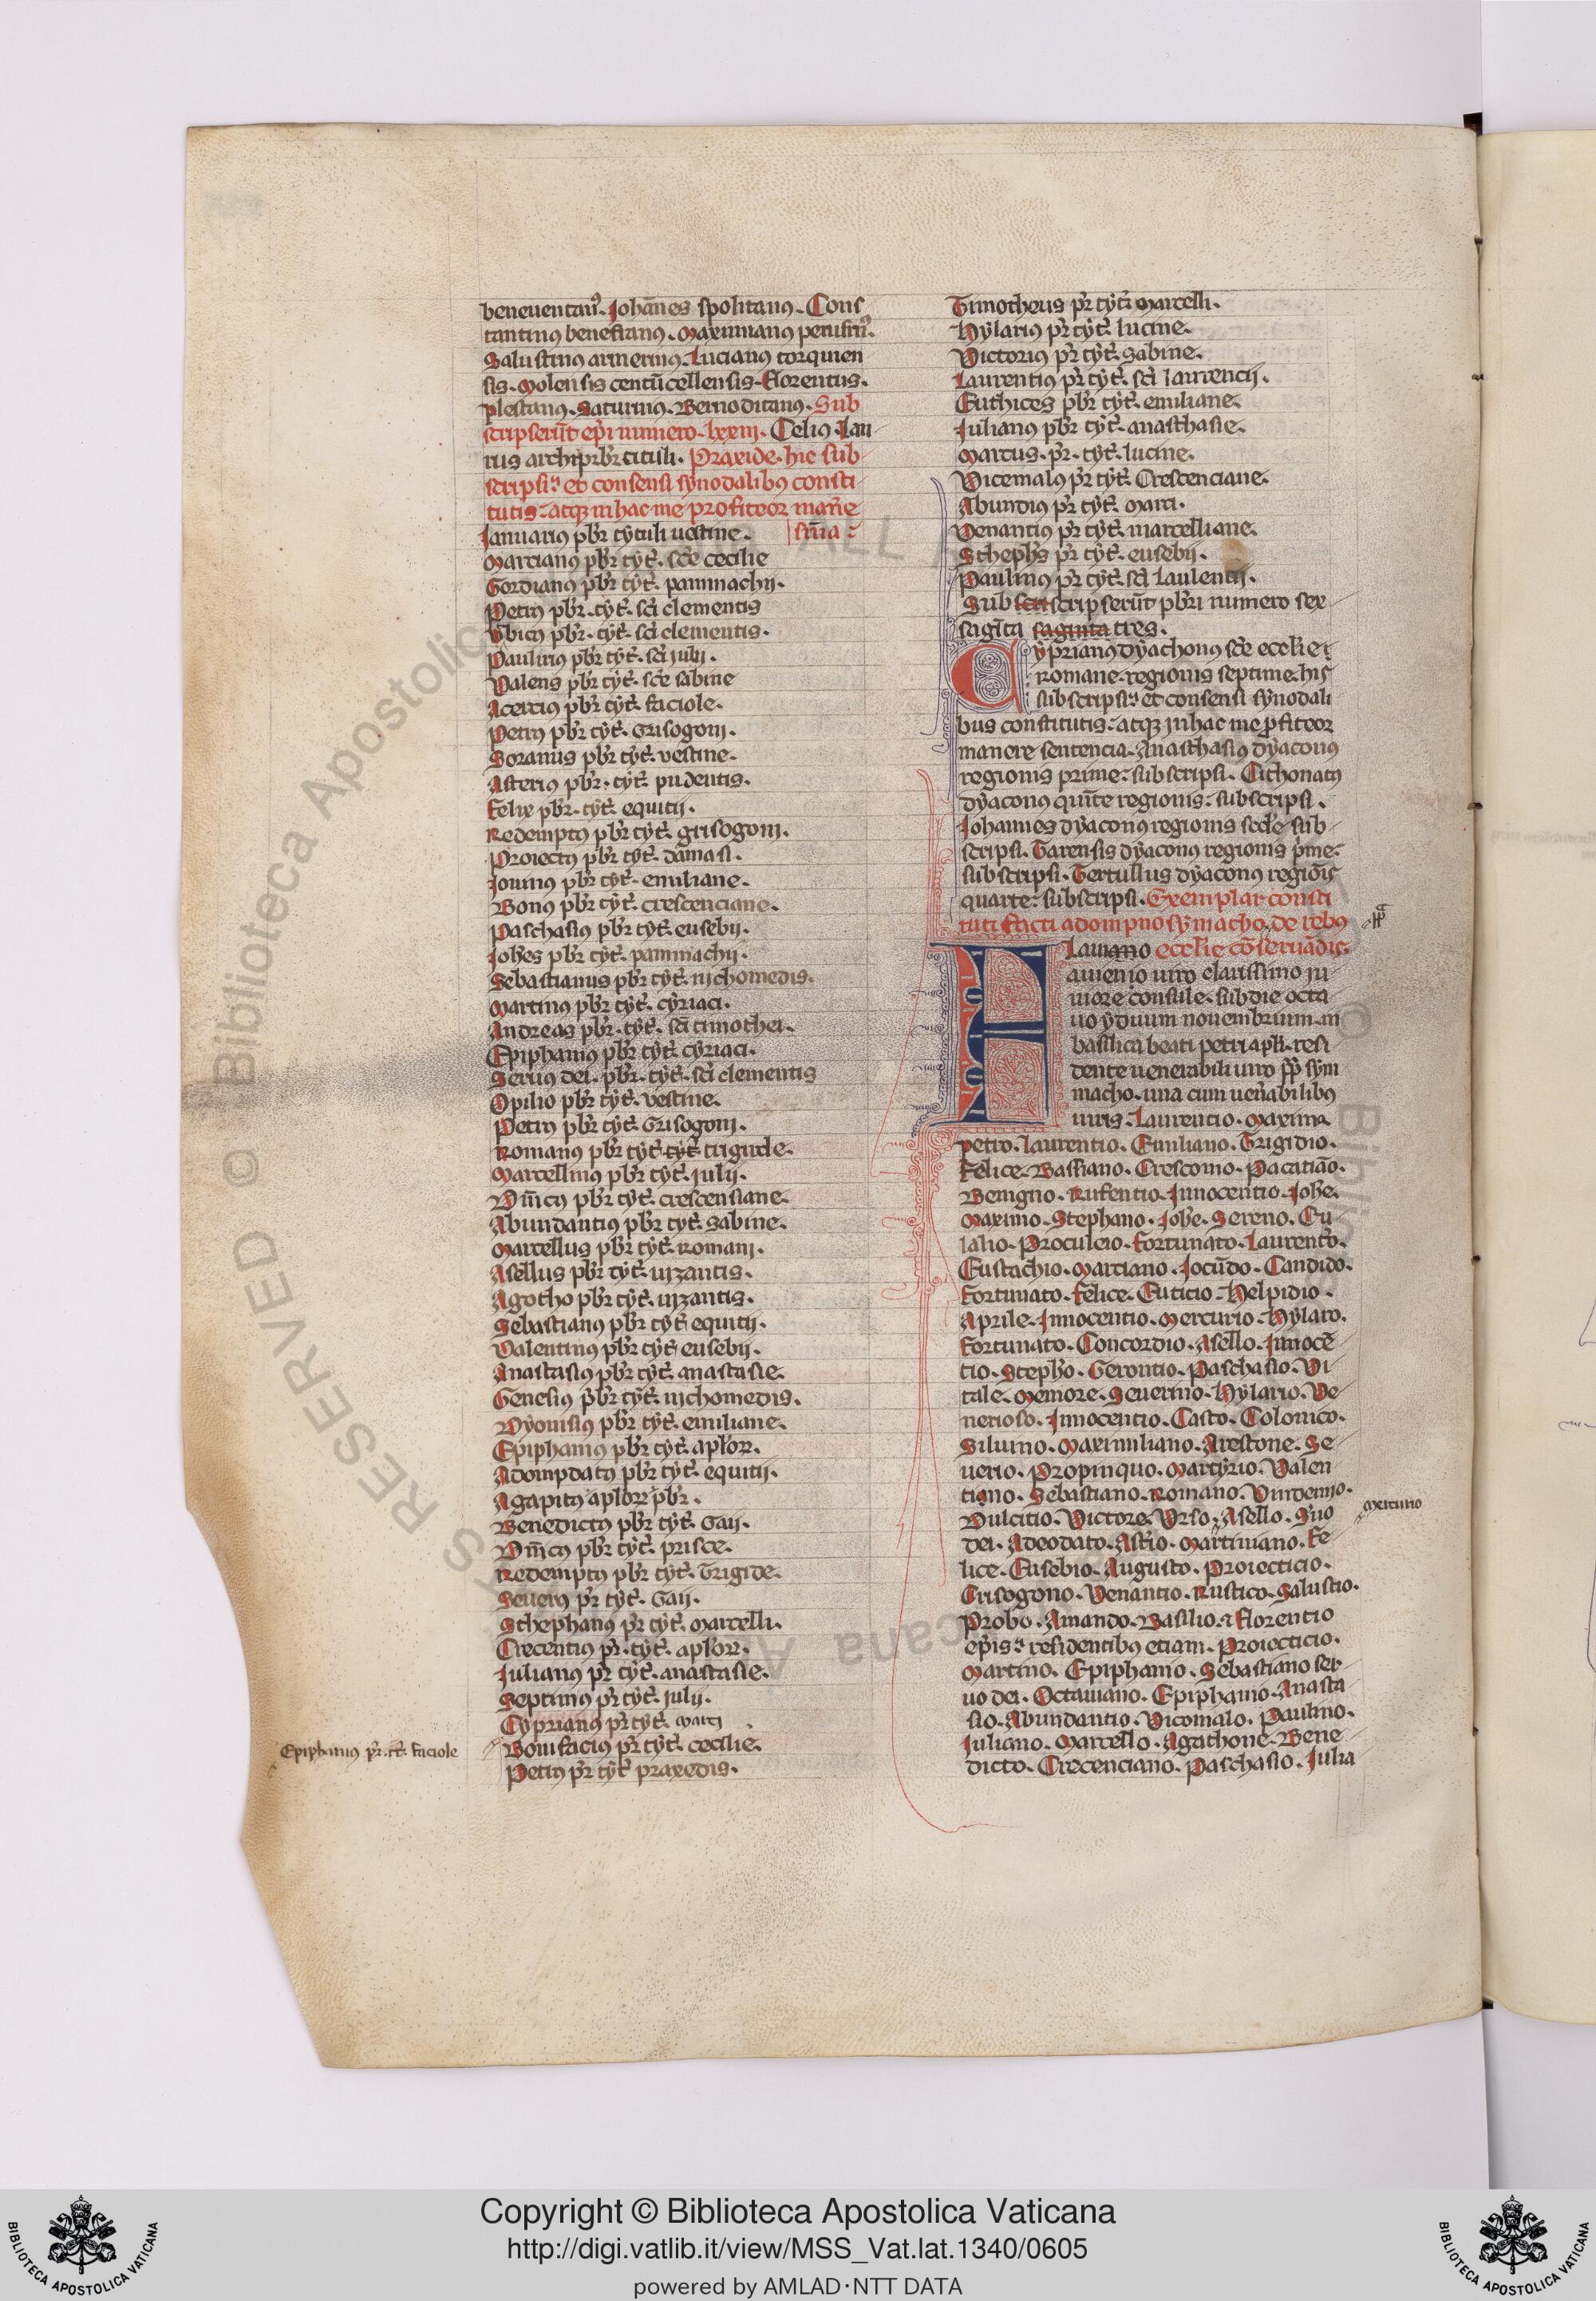 beneuentan9. Johānes spolitanus. Cons
tantinus benefranus. Maximianus perusin9.
Salustinus armerinus. Lucianus torquien
sis. Molensis centūcellensis. Florentus.
plestanus. Saturnus. Bernoditanus. Sub
scripserūt ep̄i numero. lxxiij. Celius Lau
rus archip̄rbr̄ tituli. Praxide. hic sub
scripsi. et consensi synodalibus consti
tutis. atq; in hac me profiteor man̄e
Januarius pbr̄ tytuli uestine. sn̄ia.
Marcianus pbr̄ tyt̄. sc̄e cecilie
Gordianus pbr̄ tyt̄. pammachij.
Petrus pbr̄. tyt̄. sc̄i clementis
Vrbicus pbr̄. tyt̄. sc̄i clementis.
Paulinus pbr̄ tyt̄. sc̄i julij.
Valens pbr̄ tyt̄. sc̄e sabine
Acertius pbr̄ tyt̄. faciole.
Petrus pbr̄ tyt̄. Grisogoni.
Soranus pbr̄ tyt̄. vestine.
Asterius pbr̄. tyt̄. pudentis.
Felix pbr̄. tyt̄. equitij.
Redemptus pbr̄ tyt̄. grisogoni.
Proiectus pbr̄ tyt̄. damasi.
Jouinus pbr̄ tyt̄. emiliane.
Bonus pbr̄ tyt̄. crescenciane.
Paschasius pbr̄ tyt̄. eusebij.
Joh̄es pbr̄ tyt̄. pammachij.
Sebastianus pbr̄ tyt̄. nichomedis.
Martinus pbr̄ tyt̄. cyriaci.
Andreas pbr̄. tyt̄. sc̄i timothei.
Epiphanius pbr̄ tyt̄. cyriaci.
Seruus dei. pbr̄. tyt̄. sc̄i clementis
Opilio pbr̄ tyt̄. vestine.
Petrus pbr̄ tyt̄. Grisogoni.
Romanus pbr̄ tyt̄. tyt̄. trigide.
Marcellinus pbr̄ tyt̄. julij.
Dn̄icus pbr̄ tyt̄. crescensiane.
Abundantius pbr̄ tyt̄. Sabine.
Marcellus pbr̄ tyt̄. romani.
Asellus pbr̄ tyt̄. uizantis.
Agotho pbr̄ tyt̄. uizantis.
Sebastianus pbr̄ tyt̄ equitij.
Valentinus pbr̄ tyt̄ eusebij.
Anastasius pbr̄ tyt̄. anastasie.
Genesius pbr̄ tyt̄. nichomedis.
Dyonisius pbr̄ tyt̄. emiliane.
Epiphanius pbr̄ tyt̄. apl̄or.
Adompdatus pbr̄ tyt̄. equitij.
Agapitus apl̄or pbr̄.
Benedictus pbr̄ tyt̄. Gaij.
Dn̄icus pbr̄ tyt̄. prisce.
Redemptus pbr̄ tyt̄. Trigide.
Seuerus pr̄ tyt̄. Gaij.
Sthephanus pr̄ tyt̄. Marcelli.
Crecentius pr̄. tyt̄. apl̄or.
Julianus pr̄ tyt̄. anastasie.
Septimus pr̄ tyt̄. julij.
Cyprianus pr̄ tyt̄. Marcj.
Epiphanius pr̄. tt̄. faciole
Bonifacius pr̄ tyt̄. cecilie.
Petrus pr̄ tyt̄ praxedis.
Timotheus pr̄ tyt̄ Marcelli.
Hylarius pr̄ tyt̄. lucine.
Victorius pr̄ tyt̄. Sabine.
Laurentius pr̄ tyt̄. sc̄i laurencij.
Euthices pbr̄ tyt̄. emiliane.
Julianus pbr̄ tyt̄. anasthasie.
Marcus. pr̄. tyt̄. lucine.
Vicemalus pr̄ tyt̄. Crescenciane.
Abundius pr̄ tyt̄. Marci.
Venantius pr̄ tyt̄. marcelliane.
Stheph̄s pr̄ tyt̄. eusebij.
Paulinus pr̄ tyt̄. sc̄i Laulentij.
Sub scri scripserūt pbr̄i numero sex
sagīta saginta tres.
Cyprianus dyachonus sc̄e eccl̄ie
romane. regionis septime. his
subscripsi. et consensi synodali
bus constitutis. atq; in hac me ꝓfiteor
manere sentencia. Anasthasius dyaconus
regionis prime. subscripsi. Cithonatus
dyaconus quīte regionis. subscripsi.
Johannes dyaconus regionis sc̄d̄e sub
scripsi. Tarensis dyaconus regionis p̄me.
subscripsi. Tertullus dyaconus regiōis
quarte. subscripsi. Exemplar consti
tuti facti a dompno symacho. de rebus
Flauiano eccl̄ie cōseruādis.
auienio uiro clarissimo iu
niore consule. sub die octa
uo yduum nouembrium. in
basilica beati petri apl̄i. resi
dente uenerabili uiro pp̄ sym
macho. una cum uen̄abilibus
uiris. Laurencio. Maxima.
petro. Laurentio. Emiliano. Trigidio.
Felice. Bassiano. Cresconio. Pacatiāo.
Benigno. Rufentio. Innocentio. Joh̄e.
Maximo. Stephano. Joh̄e. Sereno. Eu
lalio. Proculeio. Fortunato. Laurent̄o.
Eustachio. Marciano. Jocūdo. Candido.
Fortunato. Felice. Euticio. Helpidio.
Aprile. Innocentio. Mercurio. Hylaro.
Fortunato. Concordio. Asello. Innocē
tio. Steph̄o. Gerontio. Paschasio. Vi
tale. Memore. Seuerino. Hylario. Ve
nerioso. Innocentio. Casto. Colonico.
Siluino. Maximiliano. Arestone. Se
uerio. Propinquo. Martyrio. Valen
tiano. Sebastiano. Romano. Vindemio.
Dulcitio. Victore. Vrso. Asello. S̄uo
Mercurio
dei. Adeodato. Ast̄io. Martiniano. Fe
lice. Eusebio. Augusto. Proiecticio.
Crisogono. Venantio. Rustico. Salustio.
Probo. Amando. Basilio. ⁊ Florentio
ep̄is. residentibus etiam. Proiecticio.
Martino. Epiphanio. Sebastiano ser
uo dei. Octauiano. Epiphanio. Anasta
sio. Abundantio. Vicomalo. Paulino.
Juliano. Marcello. Agathone. Bene
dicto. Crecenciano. Paschasio. Julia
Copyright © Biblioteca Apostolica Vaticana
http://digi.vatlib.it/view/MSS_Vat.lat.1340/0605
powered by AMLAD·NTT DATA
BIBLIOTECA APOSTOLICA VATICANA
BIBLIOTECA APOSTOLICA VATICANA